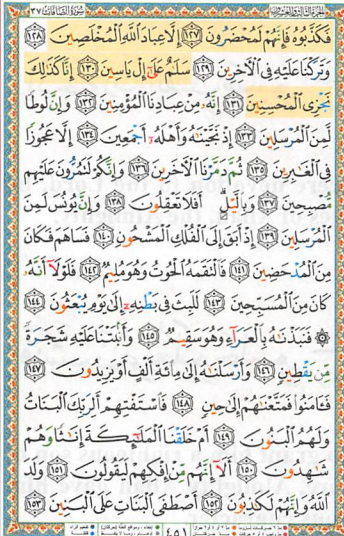 سُورَةُ الصَّافَّاتِ ٣٧
فَكَذَّبُوهُ فَإِنَّهُمْ لَمُحْضَرُونَ ١٢٧ إِلَّا عِبَادَ اللَّهِ الْمُخْلَصِينَ ١٢٨
وَتَرَكْنَا عَلَيْهِ فِي الْآخِرِينَ ١٢٩ سَلَامٌ عَلَىٰ إِلْ يَاسِينَ ١٣٠ إِنَّا كَذَٰلِكَ
نَجْزِي الْمُحْسِنِينَ ١٣١ إِنَّهُ مِنْ عِبَادِنَا الْمُؤْمِنِينَ ١٣٢ وَإِنَّ لُوطًا
لَمِنَ الْمُرْسَلِينَ ١٣٣ إِذْ نَجَّيْنَاهُ وَأَهْلَهُ أَجْمَعِينَ ١٣٤ إِلَّا عَجُوزًا
فِي الْغَابِرِينَ ١٣٥ ثُمَّ دَمَّرْنَا الْآخَرِينَ ١٣٦ وَإِنَّكُمْ لَتَمُرُّونَ عَلَيْهِم
مُّصْبِحِينَ ١٣٧ وَبِاللَّيْلِ ۗ أَفَلَا تَعْقِلُونَ ١٣٨ وَإِنَّ يُونُسَ لَمِنَ
الْمُرْسَلِينَ ١٣٩ إِذْ أَبَقَ إِلَى الْفُلْكِ الْمَشْحُونِ ١٤٠ فَسَاهَمَ فَكَانَ
مِنَ الْمُدْحَضِينَ ١٤١ فَالْتَقَمَهُ الْحُوتُ وَهُوَ مُلِيمٌ ١٤٢ فَلَوْلَا أَنَّهُ
كَانَ مِنَ الْمُسَبِّحِينَ ١٤٣ لَلَبِثَ فِي بَطْنِهِ إِلَىٰ يَوْمِ يُبْعَثُونَ ١٤٤
۞ فَنَبَذْنَاهُ بِالْعَرَاءِ وَهُوَ سَقِيمٌ ١٤٥ وَأَنبَتْنَا عَلَيْهِ شَجَرَةً
مِّن يَقْطِينٍ ١٤٦ وَأَرْسَلْنَاهُ إِلَىٰ مِائَةِ أَلْفٍ أَوْ يَزِيدُونَ ١٤٧
فَآمَنُوا فَمَتَّعْنَاهُمْ إِلَىٰ حِينٍ ١٤٨ فَاسْتَفْتِهِمْ أَلِرَبِّكَ الْبَنَاتُ
وَلَهُمُ الْبَنُونَ ١٤٩ أَمْ خَلَقْنَا الْمَلَائِكَةَ إِنَاثًا وَهُمْ
شَاهِدُونَ ١٥٠ أَلَا إِنَّهُم مِّنْ إِفْكِهِمْ لَيَقُولُونَ ١٥١ وَلَدَ
اللَّهُ وَإِنَّهُمْ لَكَاذِبُونَ ١٥٢ أَصْطَفَى الْبَنَاتِ عَلَى الْبَنِينَ ١٥٣
٤٥١